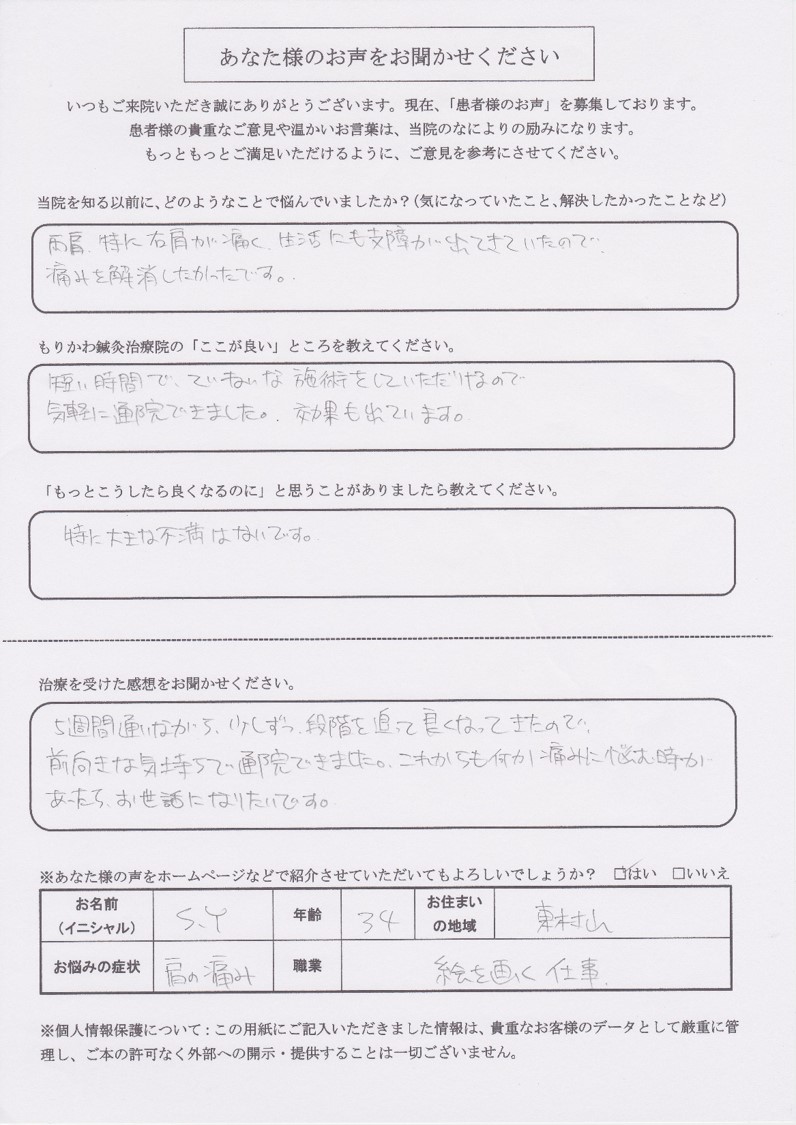 あなた様のお声をお聞かせください
いつもご来院いただき誠にありがとうございます。現在、「患者様のお声」を募集しております。
患者様の貴重なご意見や温かいお言葉は、当院のなによりの励みになります。
もっともっとご満足いただけるように、ご意見を参考にさせてください。
当院を知る以前に、どのようなことで悩んでいましたか？（気になっていたこと、解決したかったことなど）
両肩、特に右肩が痛く、生活にも支障が出てきていたので、
痛みを解消したかったです。
もりかわ鍼灸治療院の「ここが良い」ところを教えてください。
短い時間で、ていねいな施術をしていただけるので
気軽に通院できました。効果も出ています。
「もっとこうしたら良くなるのに」と思うことがありましたら教えてください。
特に大きな不満はないです。
治療を受けた感想をお聞かせください。
5週間通いながら、少しずつ、段階を追って良くなってきたので、
前向きな気持ちで通院できました。これからも何か痛みに悩む時が
あったら、お世話になりたいです。
※あなた様の声をホームページなどで紹介させていただいてもよろしいでしょうか？ ☑はい □いいえ
お名前（イニシャル） S.Y 年齢 34 お住まいの地域 東村山
お悩みの症状 肩の痛み 職業 絵を画く仕事
※個人情報保護について：この用紙にご記入いただきました情報は、貴重なお客様のデータとして厳重に管
理し、ご本の許可なく外部への開示・提供することは一切ございません。